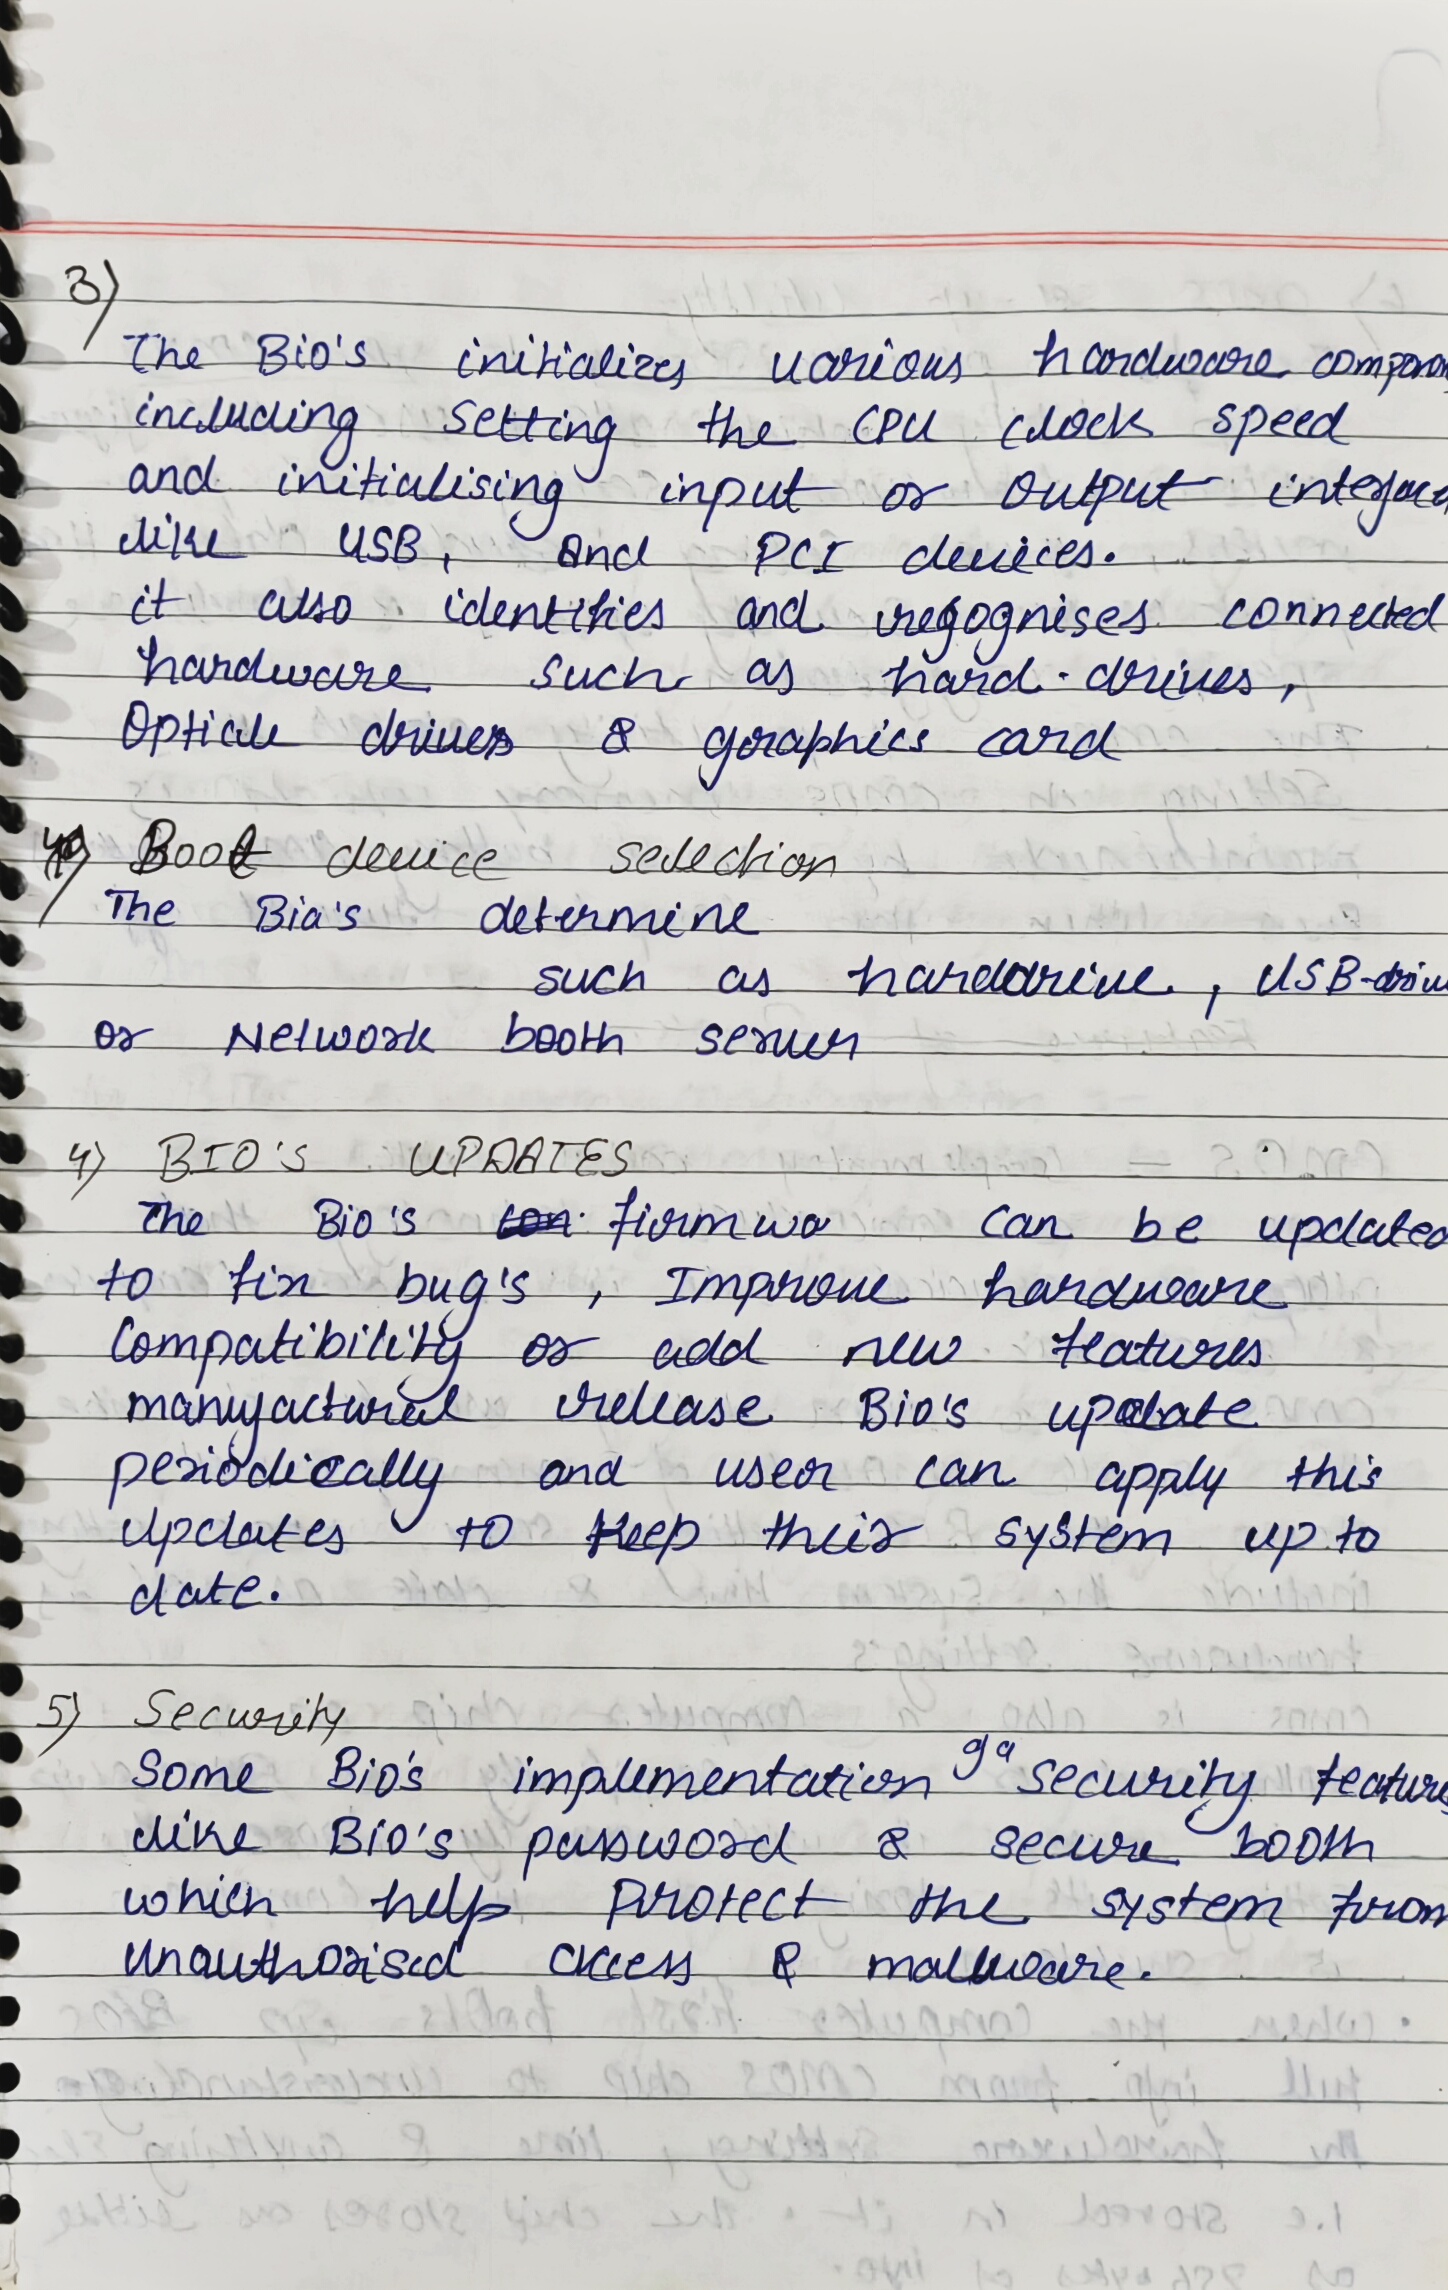 3)
The Bio's initializes various hardware
including setting the CPU clock speed
and initialising input or output
like USB, and PCI devices.
it also identifies and regognises connected
hardware such as hard-drives,
Opticle drives & graphics card
Boot device selection
The Bia's determine
such as harddrive, USB-driv
or Network booth server
4) BIO'S UPDATES
The Bio's firmwa can be updated
to fix bug's, Improve hardware
Compatibility or add new features
release Bio's update
periodically and user can apply this
updates to Keep their system up to
date.
5) Security
Some Bio's implementation security feature
like Bio's password & secure booth
which help Protect the system from
unauthorised access & mallware.